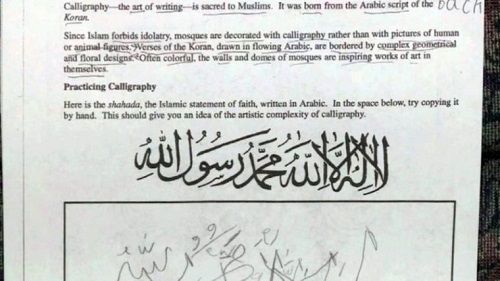 Calligraphy—the art of writing—is sacred to Muslims. It was born from the Arabic script of the
Koran.
Since Islam forbids idolatry, mosques are decorated with calligraphy rather than with pictures of human
or animal figures. Verses of the Koran, drawn in flowing Arabic, are bordered by complex geometrical
and floral designs. Often colorful, the walls and domes of mosques are inspiring works of art in
themselves.
Practicing Calligraphy
Here is the shahada, the Islamic statement of faith, written in Arabic. In the space below, try copying it
by hand. This should give you an idea of the artistic complexity of calligraphy.
لا إله إلا الله محمد رسول الله